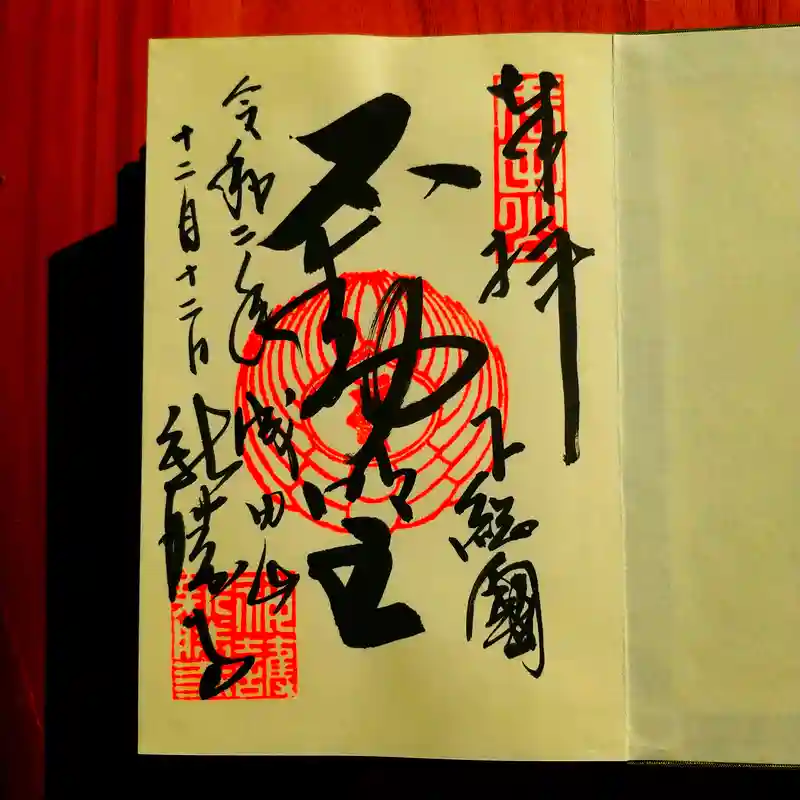 奉拝
下総國
不動明王
令和二年
十二月十二日
成田山
新勝寺